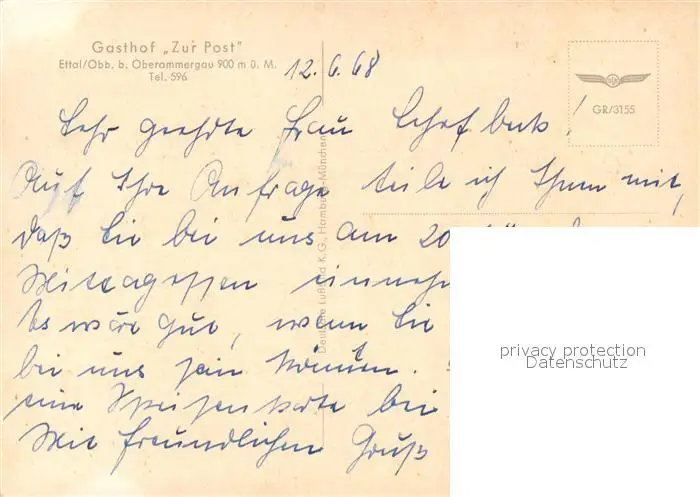 Gasthof „Zur Post"
Ettal/Obb. b. Oberammergau 900 m ü. M.
Tel. 596
12. 6. 68
GR/3155
Sehr geehrte Frau
Auf Ihre Anfrage teile ich Ihnen mit,
daß Sie bei uns am 20.
Mittagessen einneh
Es wäre gut, wenn Sie
bei uns sein könnten.
eine Speisenkarte bei
Mit freundlichem Gruß
Deutsche Luftbild K.G., Hamburg München
privacy protection
Datenschutz